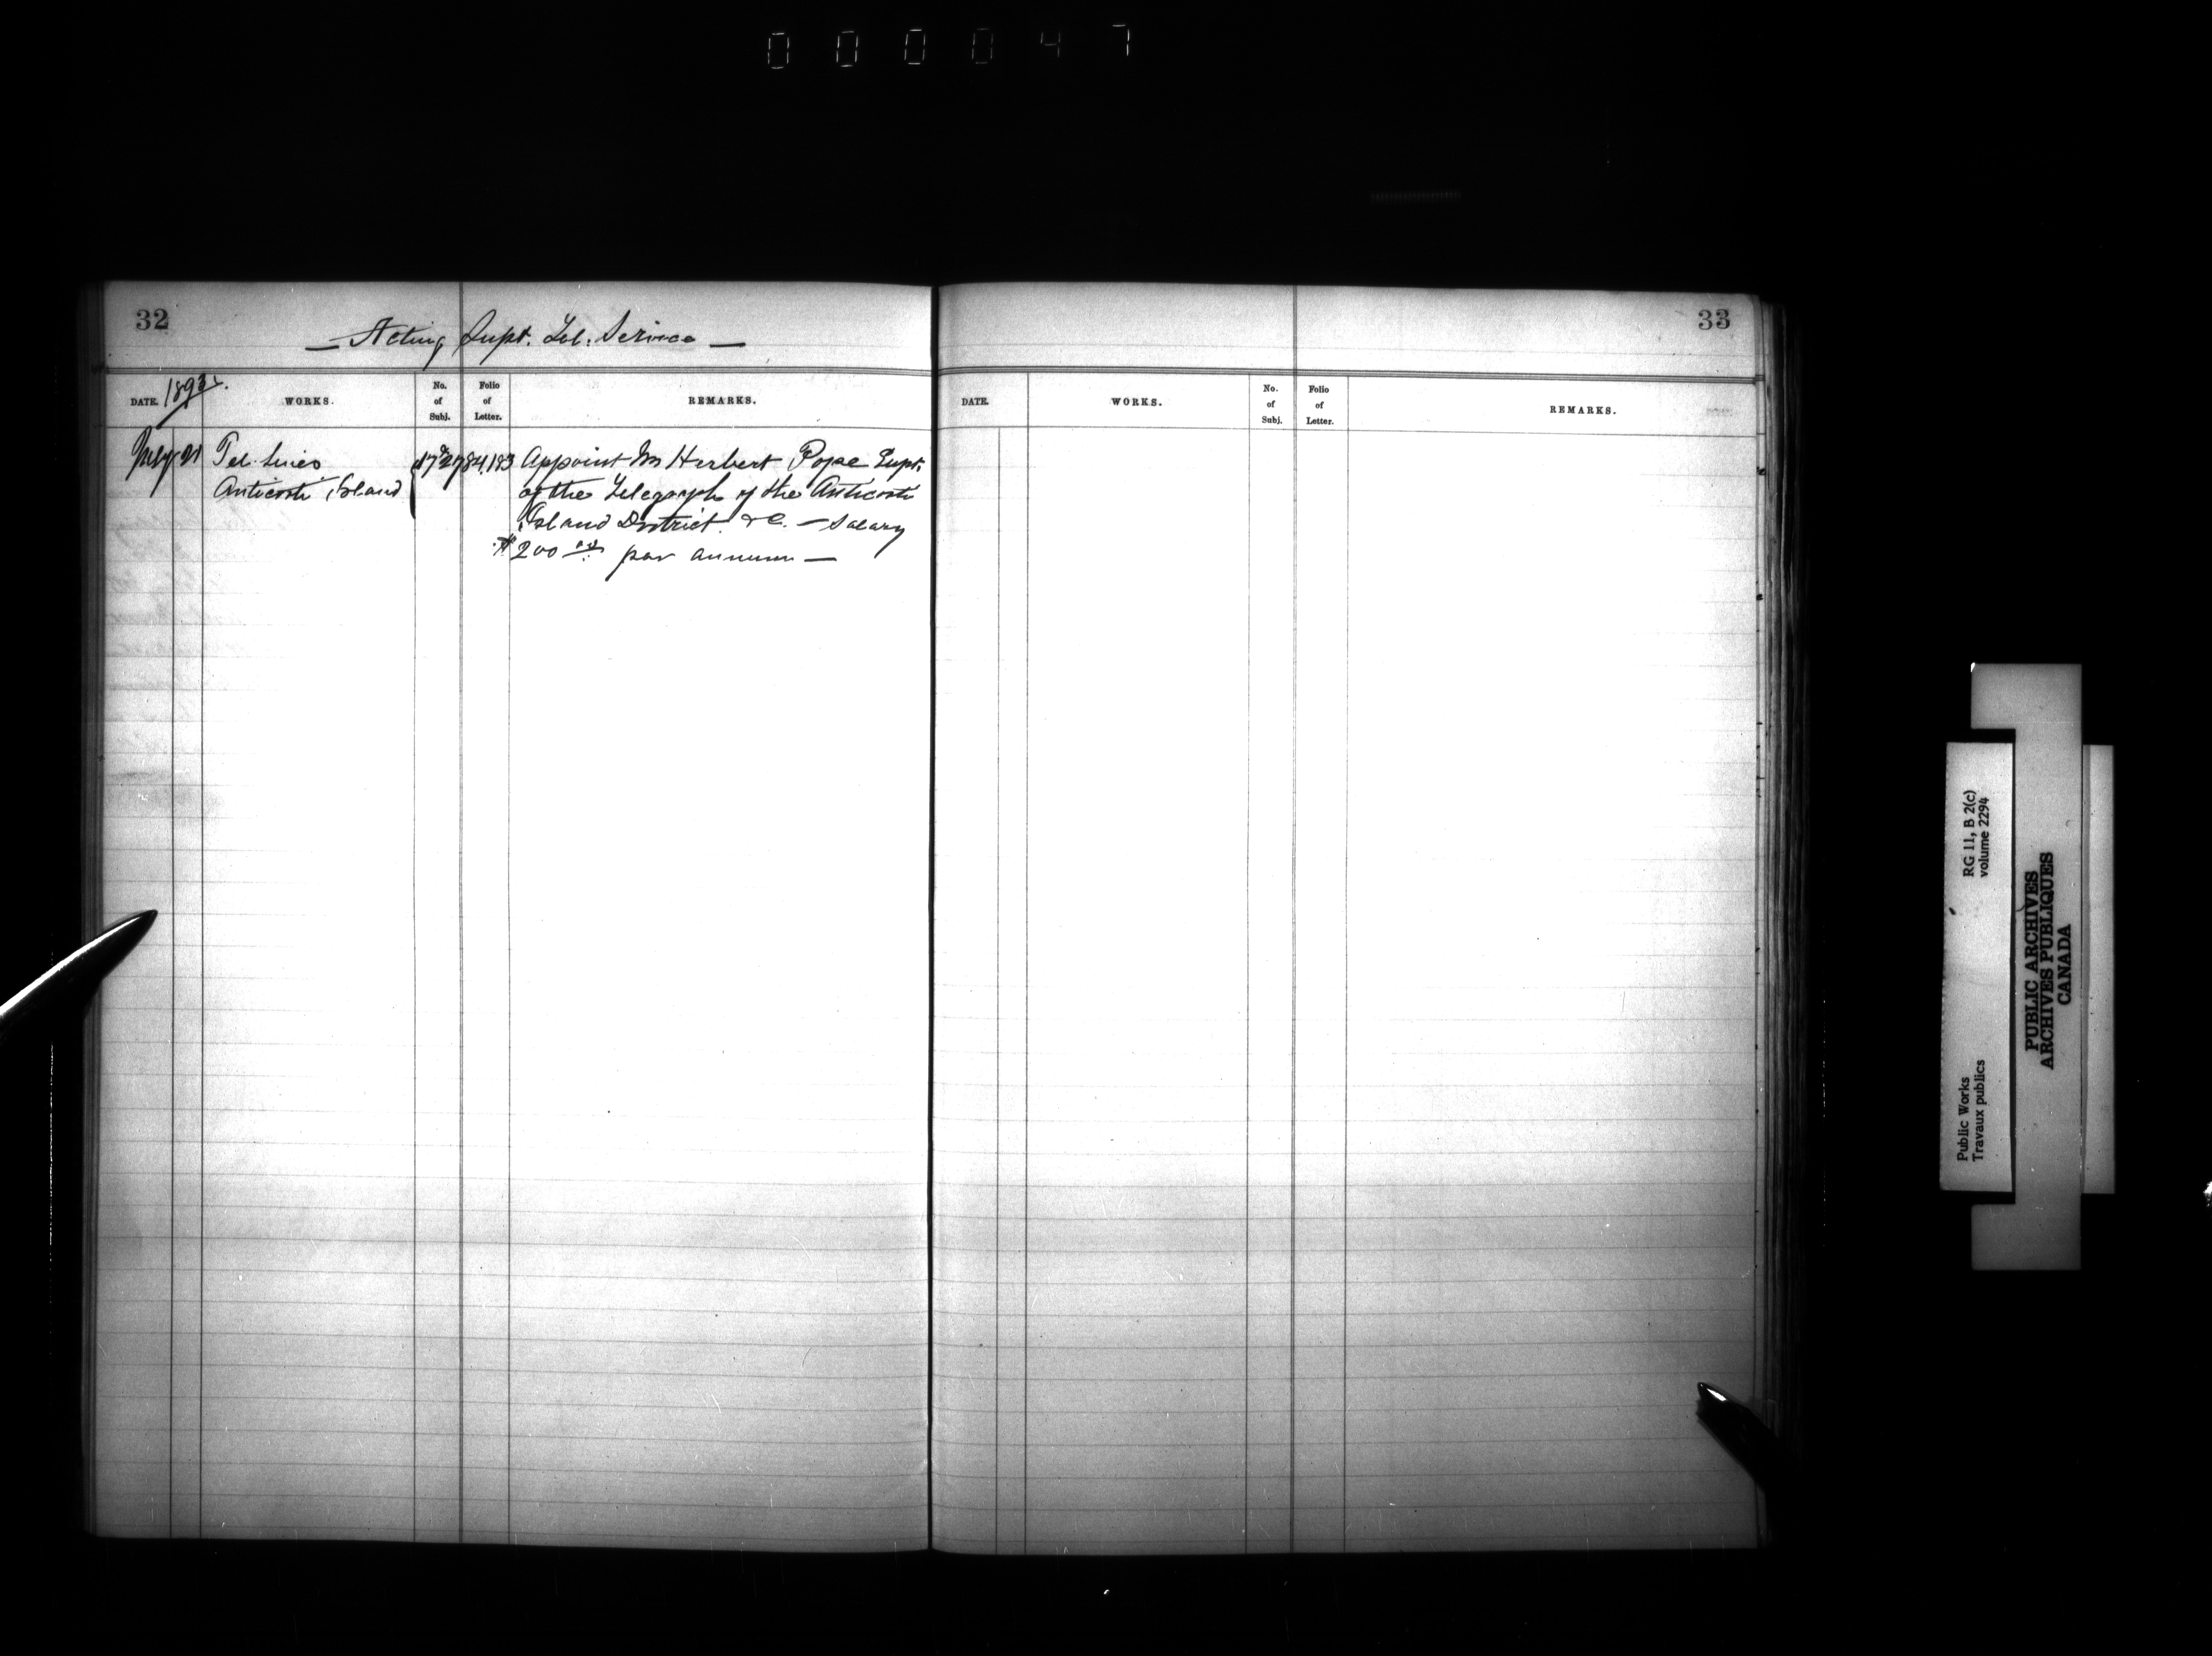 000047
32
— Acting Supt. Tel. Service —
DATE. WORKS. No. of Subj. Folio of Letter. REMARKS.
July 21 Tel. Lines 184,183 Appoint Mr Herbert Pope Supt.
Anticosti Island of the Telegraph of the Anticosti
Island District &c. — Salary
$200 00 per annum —
33
DATE. WORKS. No. of Subj. Folio of Letter. REMARKS.
RG 11, B 2(c)
volume 2294
Public Works
Travaux publics
PUBLIC ARCHIVES
ARCHIVES PUBLIQUES
CANADA